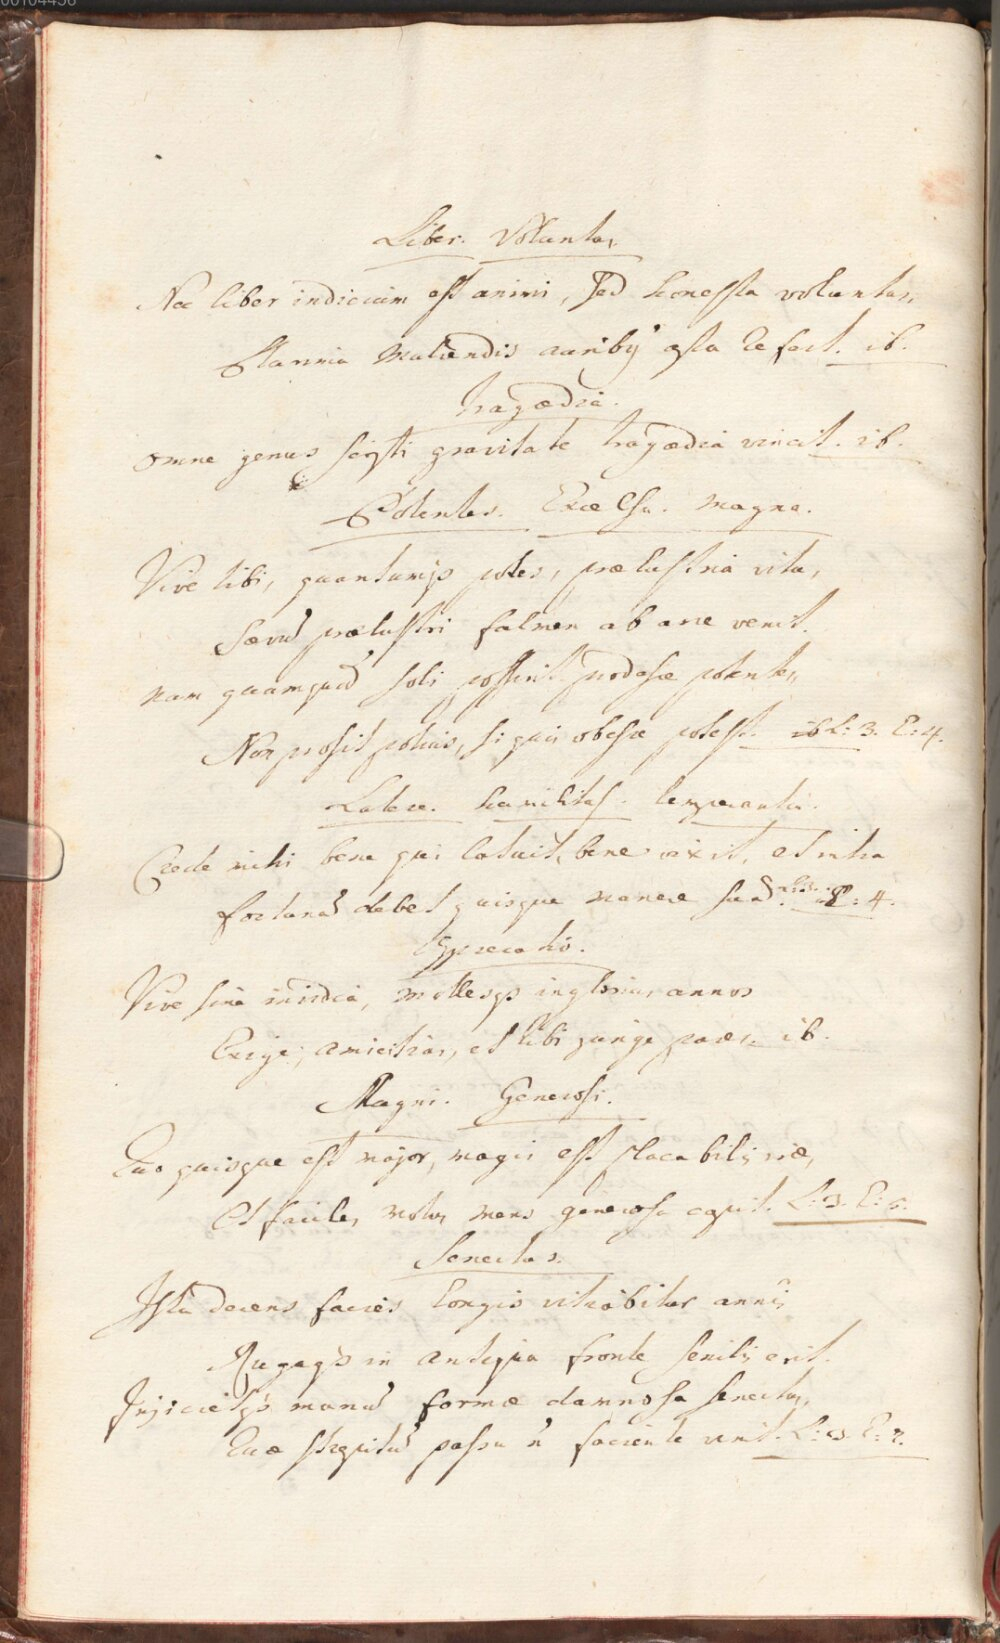 Liber. Voluntas.
Nec liber indicium est animi, sed honesta voluntas,
Plurima mulcendis auribus apta refert. ib.
Tragædia.
omne genus scripti gravitate tragædia vincit. ib.
Potentes. Excelsa. Magna.
Vive tibi, quantumqs potes, prælustria vita,
Sævum prælustri fulmen ab arce venit.
nam quamquam soli possint prodesse potentes,
Non prosit potius, si quis obesse potest. ib L: 3. E: 4.
Latere. humilitas. temperantia.
Crede mihi bene qui latuit, bene vixit, et intra
fortunam debet quisque manere suam. E: 4.
Apprecatio.
Vive sine invidia, mollesqs inglorius annos
Exige, amicitias, et tibi junge pares. ib.
Magni. Generosi.
Quo quisque est major, magis est placabilis iræ,
Et faciles motus mens generosa capit. L: 3. E: 5.
Senectus.
Ista decens facies longis vitiabitur annis,
Rugaqs in antiqua fronte senilis erit.
Injicietqs manum formæ damnosa senectus,
Quæ strepitum passu n̄ faciente venit. L: 3. E: 7.